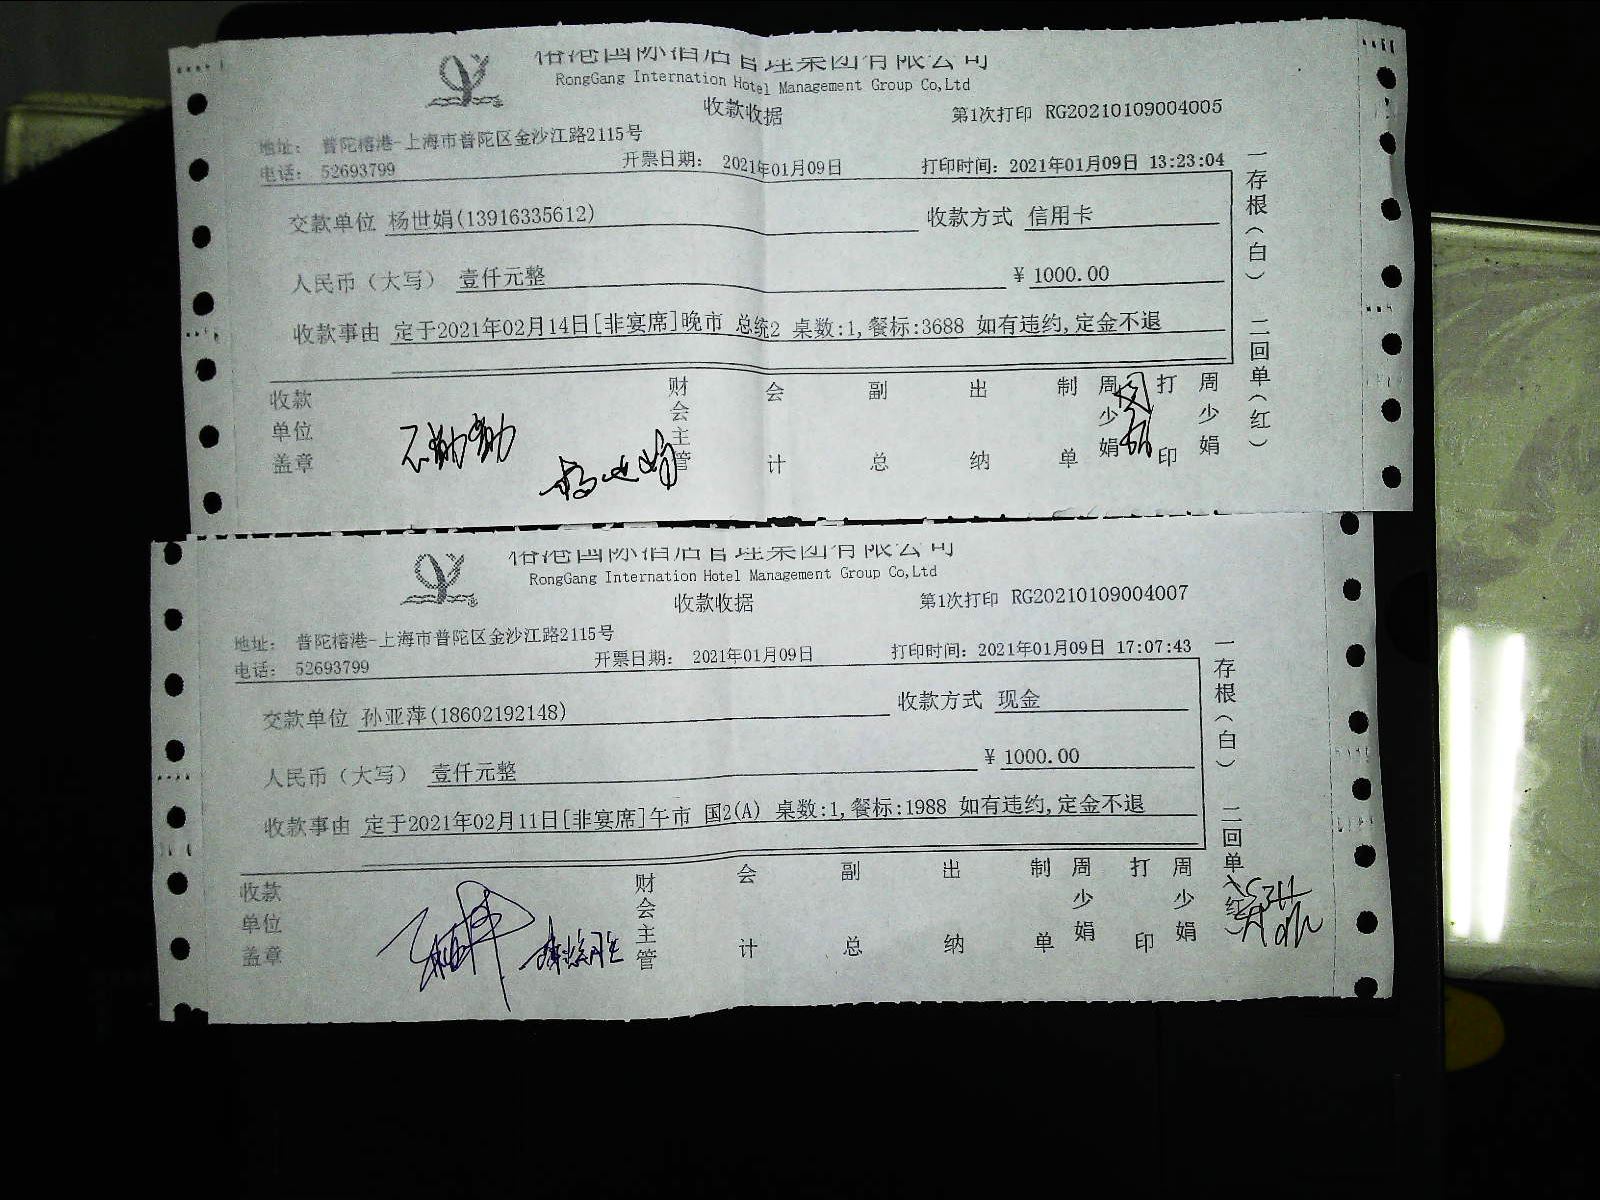 榕港国际酒店管理集团有限公司
RongGang Internation Hotel Management Group Co,Ltd
收款收据
第1次打印 RG20210109004005
地址: 普陀榕港-上海市普陀区金沙江路2115号
电话: 52693799 开票日期: 2021年01月09日 打印时间: 2021年01月09日 13:23:04
交款单位 杨世娟(13916335612) 收款方式 信用卡
人民币（大写） 壹仟元整 ¥ 1000.00
收款事由 定于2021年02月14日[非宴席]晚市 总统2 桌数:1,餐标:3688 如有违约,定金不退
收款单位盖章 财会主管 会计 副总 出纳 制单 周少娟 打印 周少娟
杨世娟
一存根（白） 二回单（红）
榕港国际酒店管理集团有限公司
RongGang Internation Hotel Management Group Co,Ltd
收款收据
第1次打印 RG20210109004007
地址: 普陀榕港-上海市普陀区金沙江路2115号
电话: 52693799 开票日期: 2021年01月09日 打印时间: 2021年01月09日 17:07:43
交款单位 孙亚萍(18602192148) 收款方式 现金
人民币（大写） 壹仟元整 ¥ 1000.00
收款事由 定于2021年02月11日[非宴席]午市 国2(A) 桌数:1,餐标:1988 如有违约,定金不退
收款单位盖章 财会主管 会计 副总 出纳 制单 周少娟 打印 周少娟
一存根（白） 二回单（红）